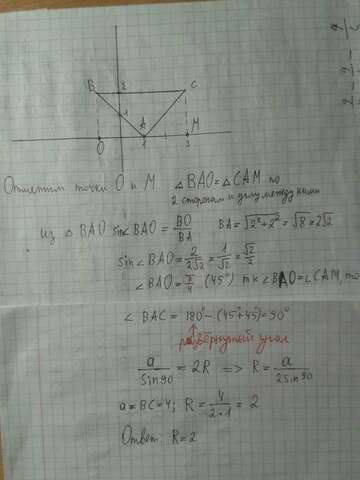 2 - 2 - 2
B 2 C
1
A M
O 1 3
Отметим точки O и M. △BAO = △CAM по
2 сторонам и углу между ними
из △BAO sin∠BAO = BO/BA BA = √(2²+2²) = √8 = 2√2
sin∠BAO = 2/(2√2) = 1/√2 = √2/2
∠BAO = π/4 (45°) т к ∠BAO = ∠CAM, то
∠BAC = 180° - (45°+45°) = 90°
развёрнутый угол
a/sin90 = 2R => R = a/(2sin90)
a = BC = 4; R = 4/(2·1) = 2
Ответ: R = 2